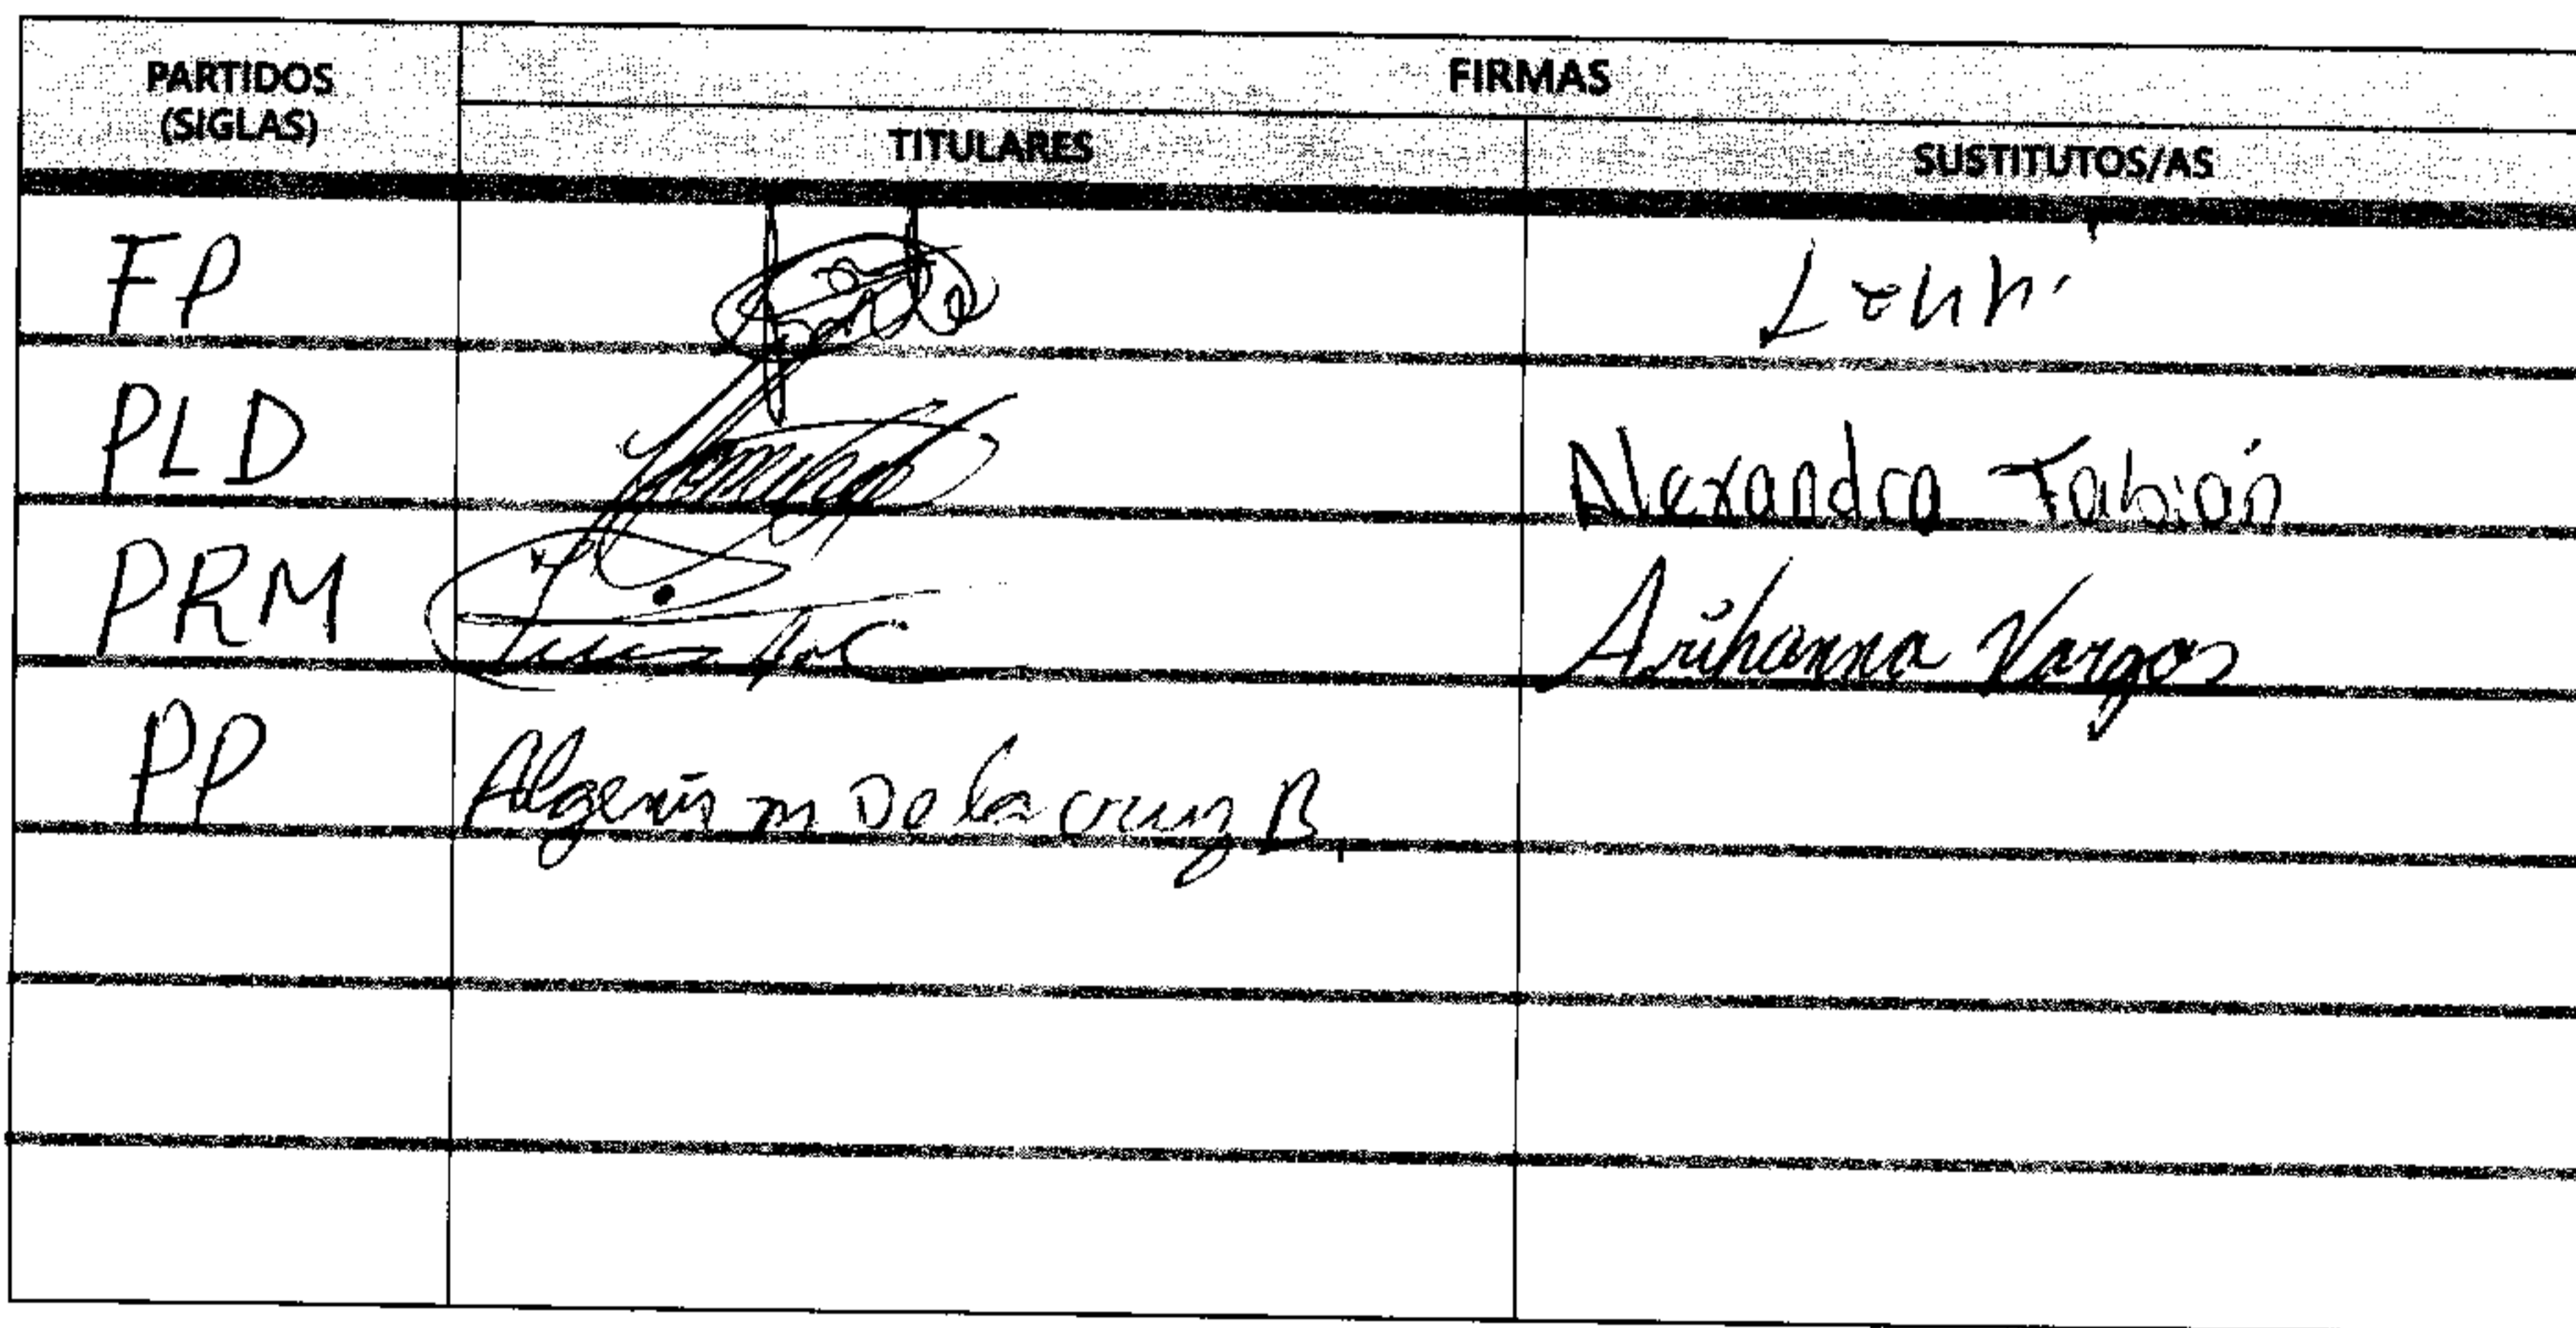 PARTIDOS
(SIGLAS)
FIRMAS
TITULARES
SUSTITUTOS/AS
FP
PLD
Alexandra Fabián
PRM
Arihanna Vargas
PP
Algenis m De la cruz B,